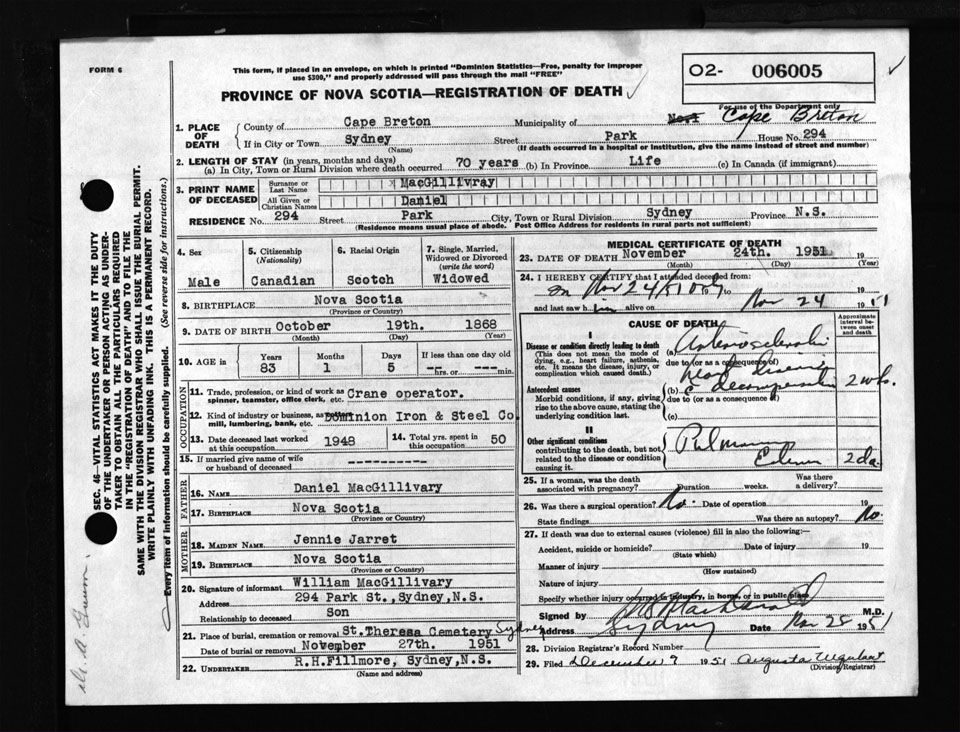 FORM 6
This form, if placed in an envelope, on which is printed "Dominion Statistics—Free, penalty for improper
use $300," and properly addressed will pass through the mail "FREE"
O2- 006005
PROVINCE OF NOVA SCOTIA—REGISTRATION OF DEATH
For use of the Department only
1. PLACE OF DEATH
County of Cape Breton Municipality of Cape Breton
If in City or Town Sydney Street Park House No. 294
(Name) (If death occurred in a hospital or institution, give the name instead of street and number)
2. LENGTH OF STAY (in years, months and days)
(a) In City, Town or Rural Division where death occurred 70 years (b) In Province Life (c) In Canada (if immigrant)
3. PRINT NAME OF DECEASED
Surname or Last Name MacGillivray
All Given or Christian Names Daniel
RESIDENCE No. 294 Street Park City, Town or Rural Division Sydney Province N.S.
(Residence means usual place of abode. Post Office Address for residents in rural parts not sufficient)
4. Sex
Male
5. Citizenship (Nationality)
Canadian
6. Racial Origin
Scotch
7. Single, Married, Widowed or Divorced (write the word)
Widowed
8. BIRTHPLACE Nova Scotia
(Province or Country)
9. DATE OF BIRTH October 19th. 1868
(Month) (Day) (Year)
10. AGE in Years Months Days If less than one day old
83 1 5 --- hrs. or --- min.
OCCUPATION
11. Trade, profession, or kind of work as spinner, teamster, office clerk, etc. Crane operator.
12. Kind of industry or business, as mill, lumbering, bank, etc. Dominion Iron & Steel Co.
13. Date deceased last worked at this occupation 1948
14. Total yrs. spent in this occupation 50
15. If married give name of wife or husband of deceased ------------
FATHER
16. NAME Daniel MacGillivary
17. BIRTHPLACE Nova Scotia
(Province or Country)
MOTHER
18. MAIDEN NAME Jennie Jarret
19. BIRTHPLACE Nova Scotia
(Province or Country)
20. Signature of informant William MacGillivary
Address 294 Park St.,Sydney,N.S.
Relationship to deceased Son
21. Place of burial, cremation or removal St.Theresa Cemetery Sydney
Date of burial or removal November 27th. 1951
22. UNDERTAKER R.H.Fillmore, Sydney,N.S.
(Name and address)
MEDICAL CERTIFICATE OF DEATH
23. DATE OF DEATH November 24th. 1951 19
(Month) (Day) (Year)
24. I HEREBY CERTIFY that I attended deceased from:
on Nov 24/51 only 19
and last saw him alive on Nov 24 1951
CAUSE OF DEATH
Approximate interval between onset and death
I
Disease or condition directly leading to death
(This does not mean the mode of dying, e.g., heart failure, asthenia, etc. It means the disease, injury, or complication which caused death.)
(a)
due to (or as a consequence of)
Antecedent causes
Morbid conditions, if any, giving rise to the above cause, stating the underlying condition last.
(b) 2 wks.
due to (or as a consequence of)
(c)
II
Other significant conditions
contributing to the death, but not related to the disease or condition causing it.
2 da.
25. If a woman, was the death associated with pregnancy? Duration weeks. Was there a delivery?
26. Was there a surgical operation? No. Date of operation 19
State findings Was there an autopsy? No.
27. If death was due to external causes (violence) fill in also the following:—
Accident, suicide or homicide? Date of injury 19
(State which)
Manner of injury
(How sustained)
Nature of injury
Specify whether injury occurred in industry, in home, or in public place
Signed by M.D.
Address Sydney Date Nov 25 1951
28. Division Registrar's Record Number
29. Filed December 9 1951 Augusta Urquhart
(Division Registrar)
SEC. 46—VITAL STATISTICS ACT MAKES IT THE DUTY
OF THE UNDERTAKER OR PERSON ACTING AS UNDER-
TAKER TO OBTAIN ALL THE PARTICULARS REQUIRED
IN THE "REGISTRATION OF DEATH" AND TO FILE THE
SAME WITH THE DIVISION REGISTRAR WHO SHALL ISSUE THE BURIAL PERMIT.
WRITE PLAINLY WITH UNFADING INK. THIS IS A PERMANENT RECORD.
Every item of information should be carefully supplied. (See reverse side for instructions.)